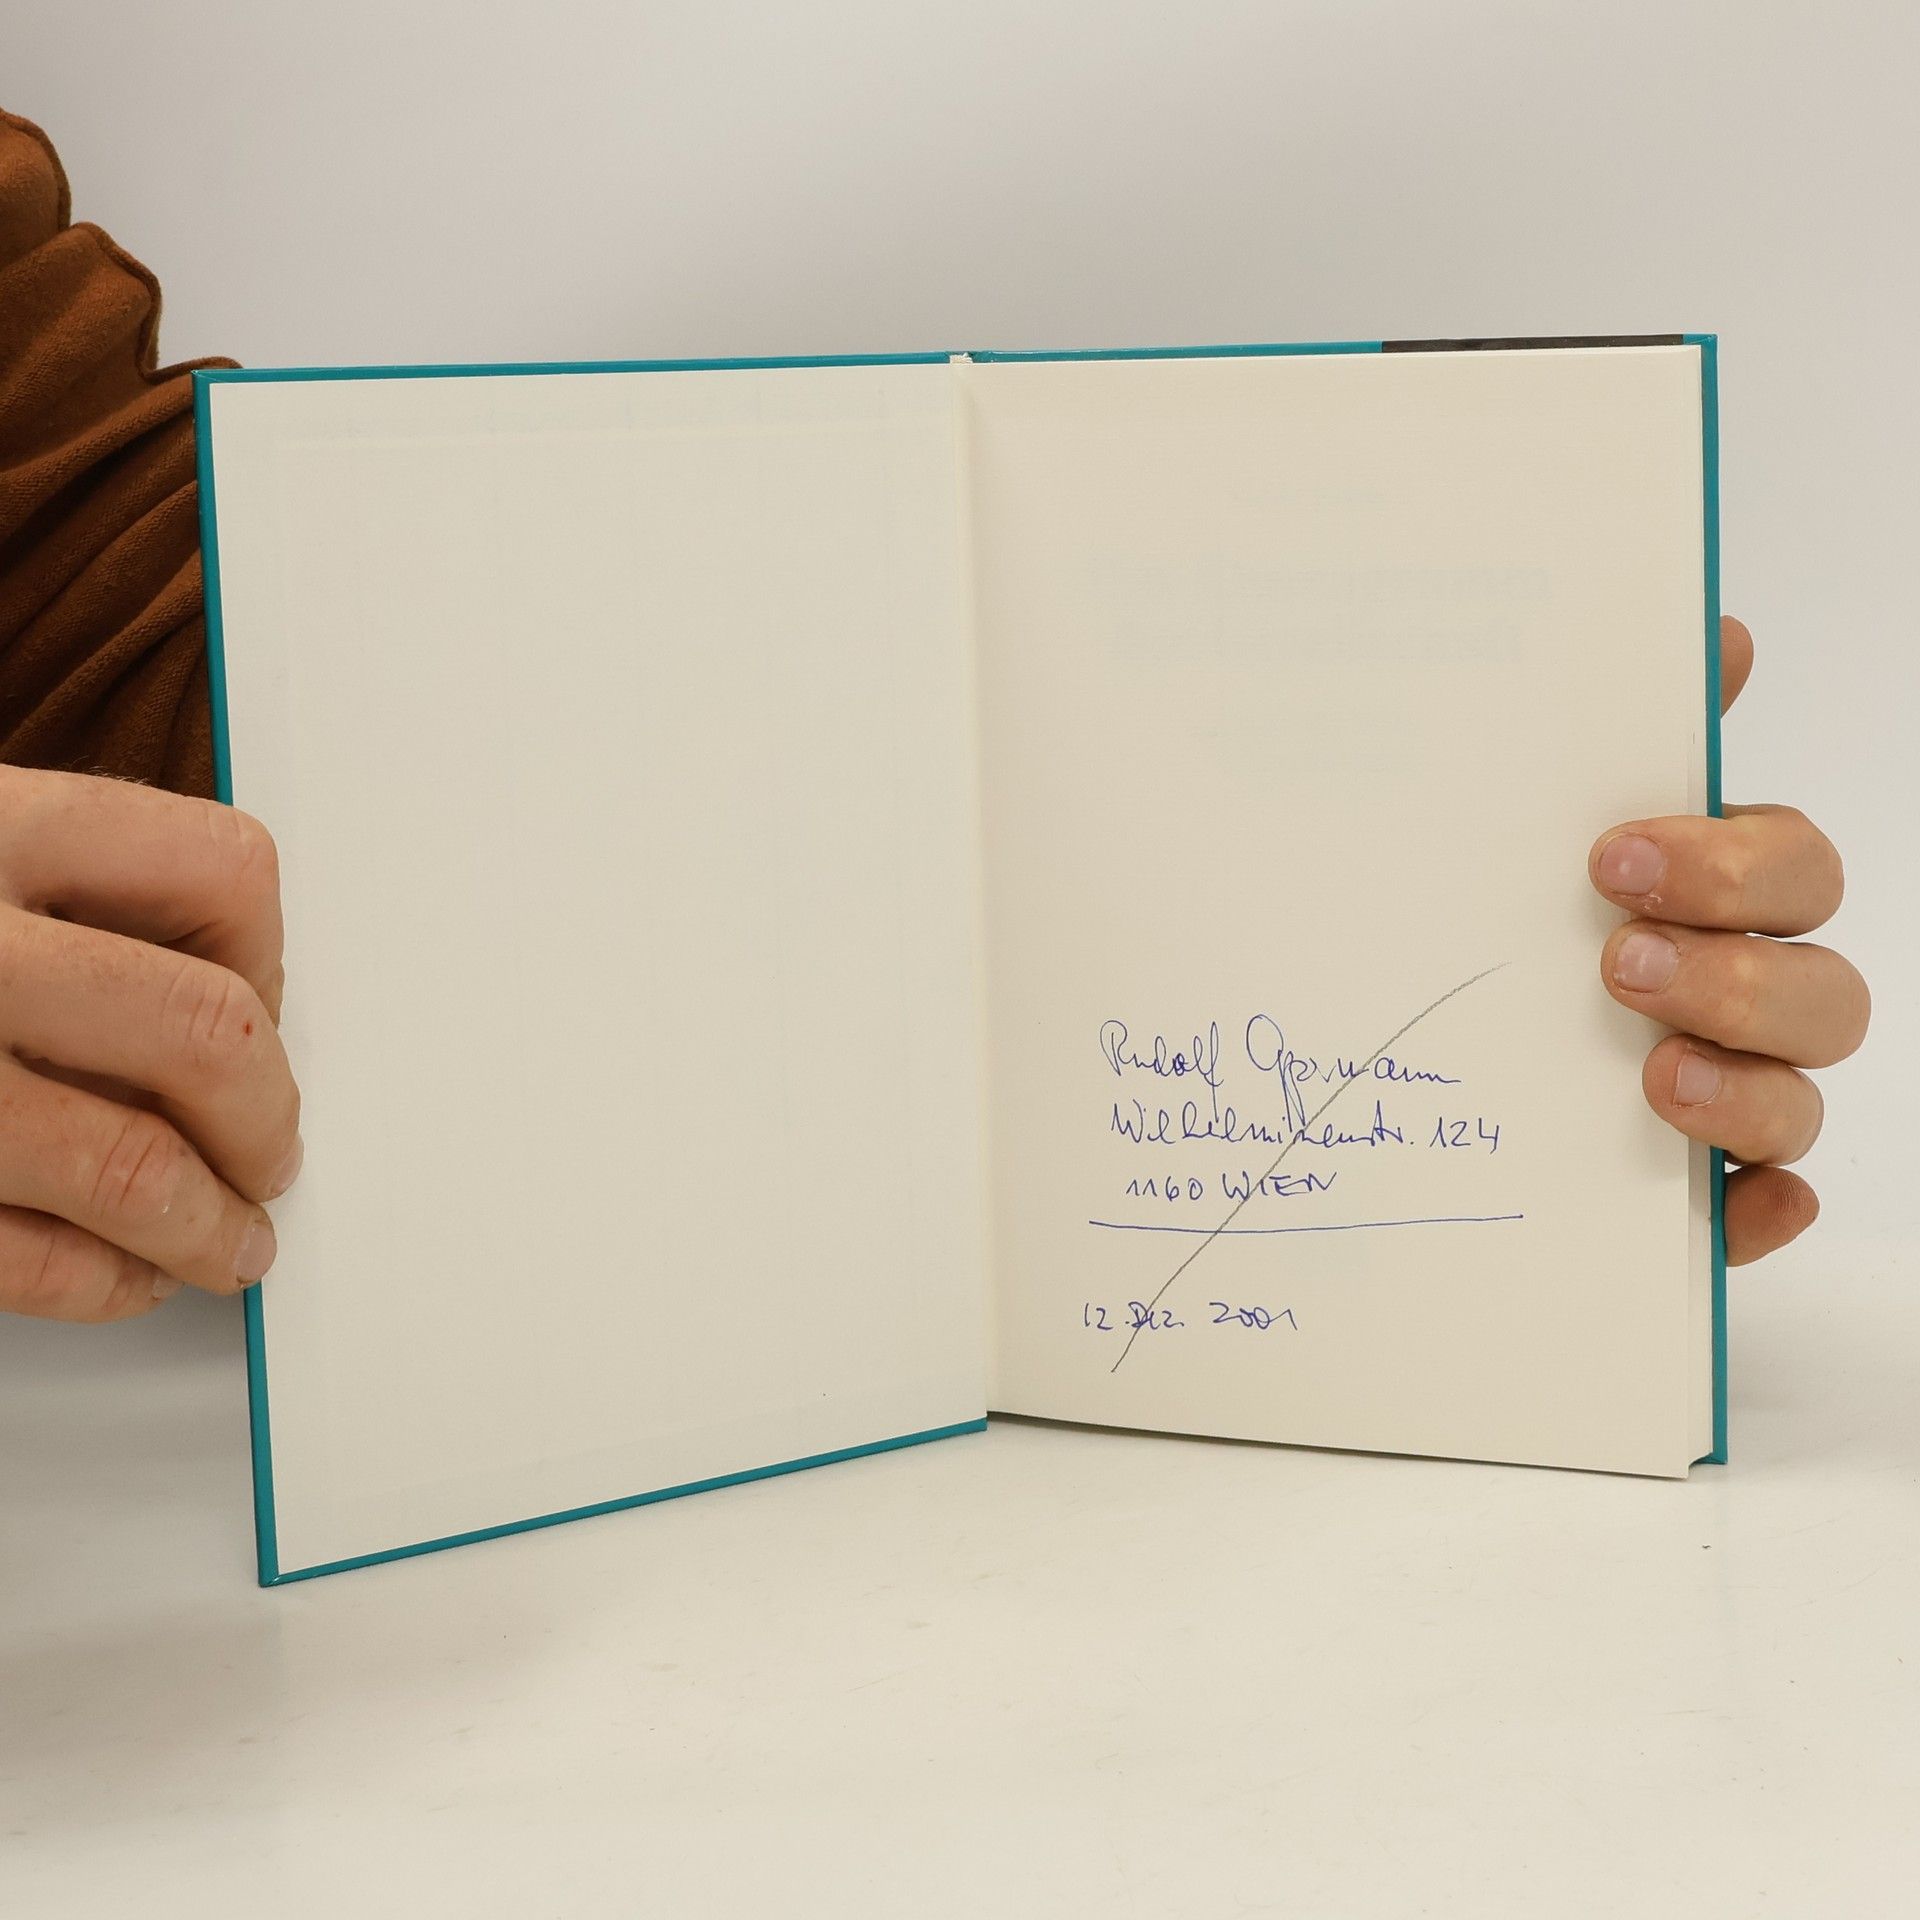 Rudolf
Wilhelminenstr. 124
1160 WIEN
12. Dez. 2001